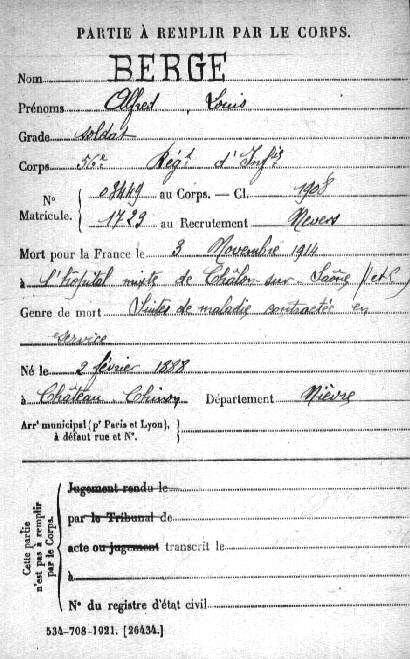 PARTIE À REMPLIR PAR LE CORPS.
Nom BERGE
Prénoms Alfred, Louis
Grade soldat
Corps 56e Régt d'Infie
N° Matricule. { 03449 au Corps. — Cl. 1908
1723 au Recrutement Nevers
Mort pour la France le 3 Novembre 1914
à l'Hôpital mixte de Châlon sur Saône (S et L)
Genre de mort Suites de maladie contractée en
service
Né le 2 février 1888
à Château Chinon Département Nièvre
Arrt municipal (pr Paris et Lyon),
à défaut rue et N°.
Cette partie n'est pas à remplir par le Corps.
Jugement rendu le
par le Tribunal de
acte ou jugement transcrit le
à
N° du registre d'état civil
534-708-1921. [26434.]